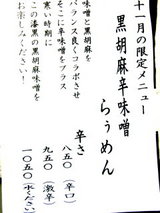 十一月の限定メニュー
黒胡麻辛味噌
らぅめん
味噌と黒胡麻を
バランス良くコラボさせ
そこに辛味噌をプラス
寒い時期に
この漆黒の黒胡麻味噌を
お楽しみください!
辛さ
八五〇(辛口)
九五〇(激辛)
一〇五〇(水ください)